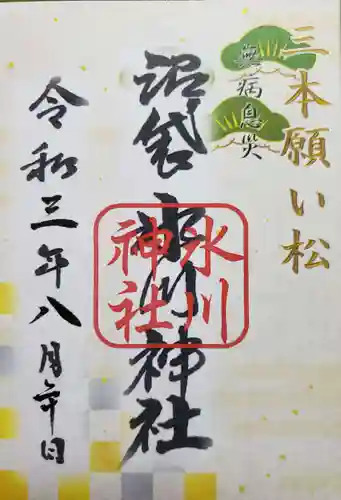 三本願い松
無病息災
沼袋氷川神社
氷川
神社
令和三年八月吉日